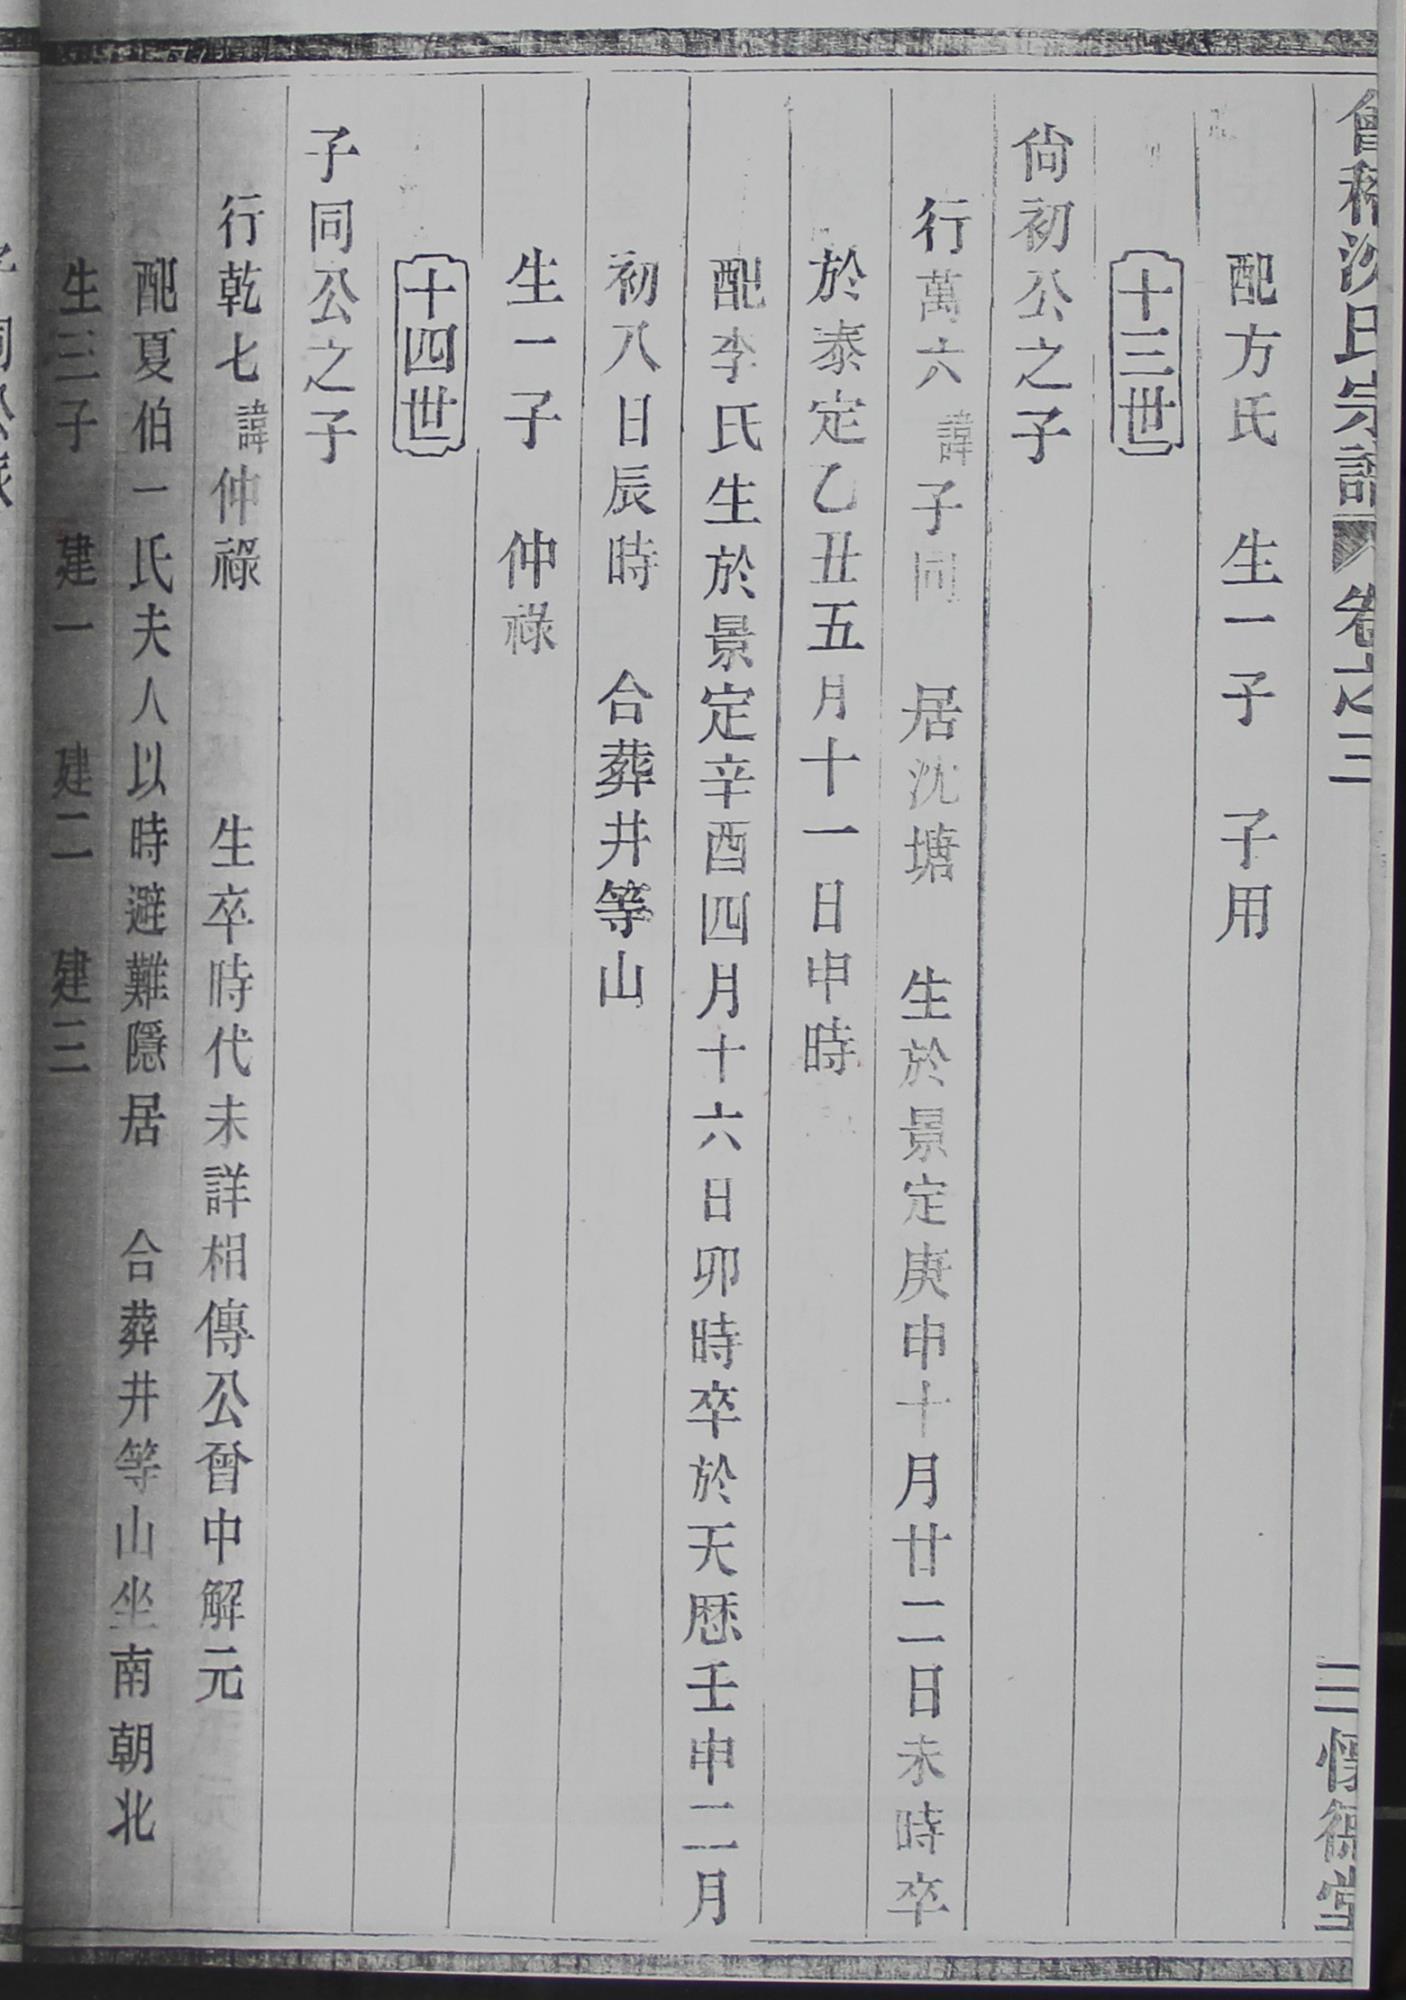 會稽沈氏宗譜 卷之三 三 惇敘堂
配方氏 生一子 子用
十三世
尙初公之子
行萬六 諱子同 居沈塘 生於景定庚申十月廿二日未時卒
於泰定乙丑五月十一日申時
配李氏生於景定辛酉四月十六日卯時卒於天厯壬申二月
初八日辰時 合葬井等山
生一子 仲祿
十四世
子同公之子
行乾七 諱仲祿 生卒時代未詳相傳公曾中解元
配夏伯一氏夫人以時避難隱居 合葬井等山坐南朝北
生三子 建一 建二 建三